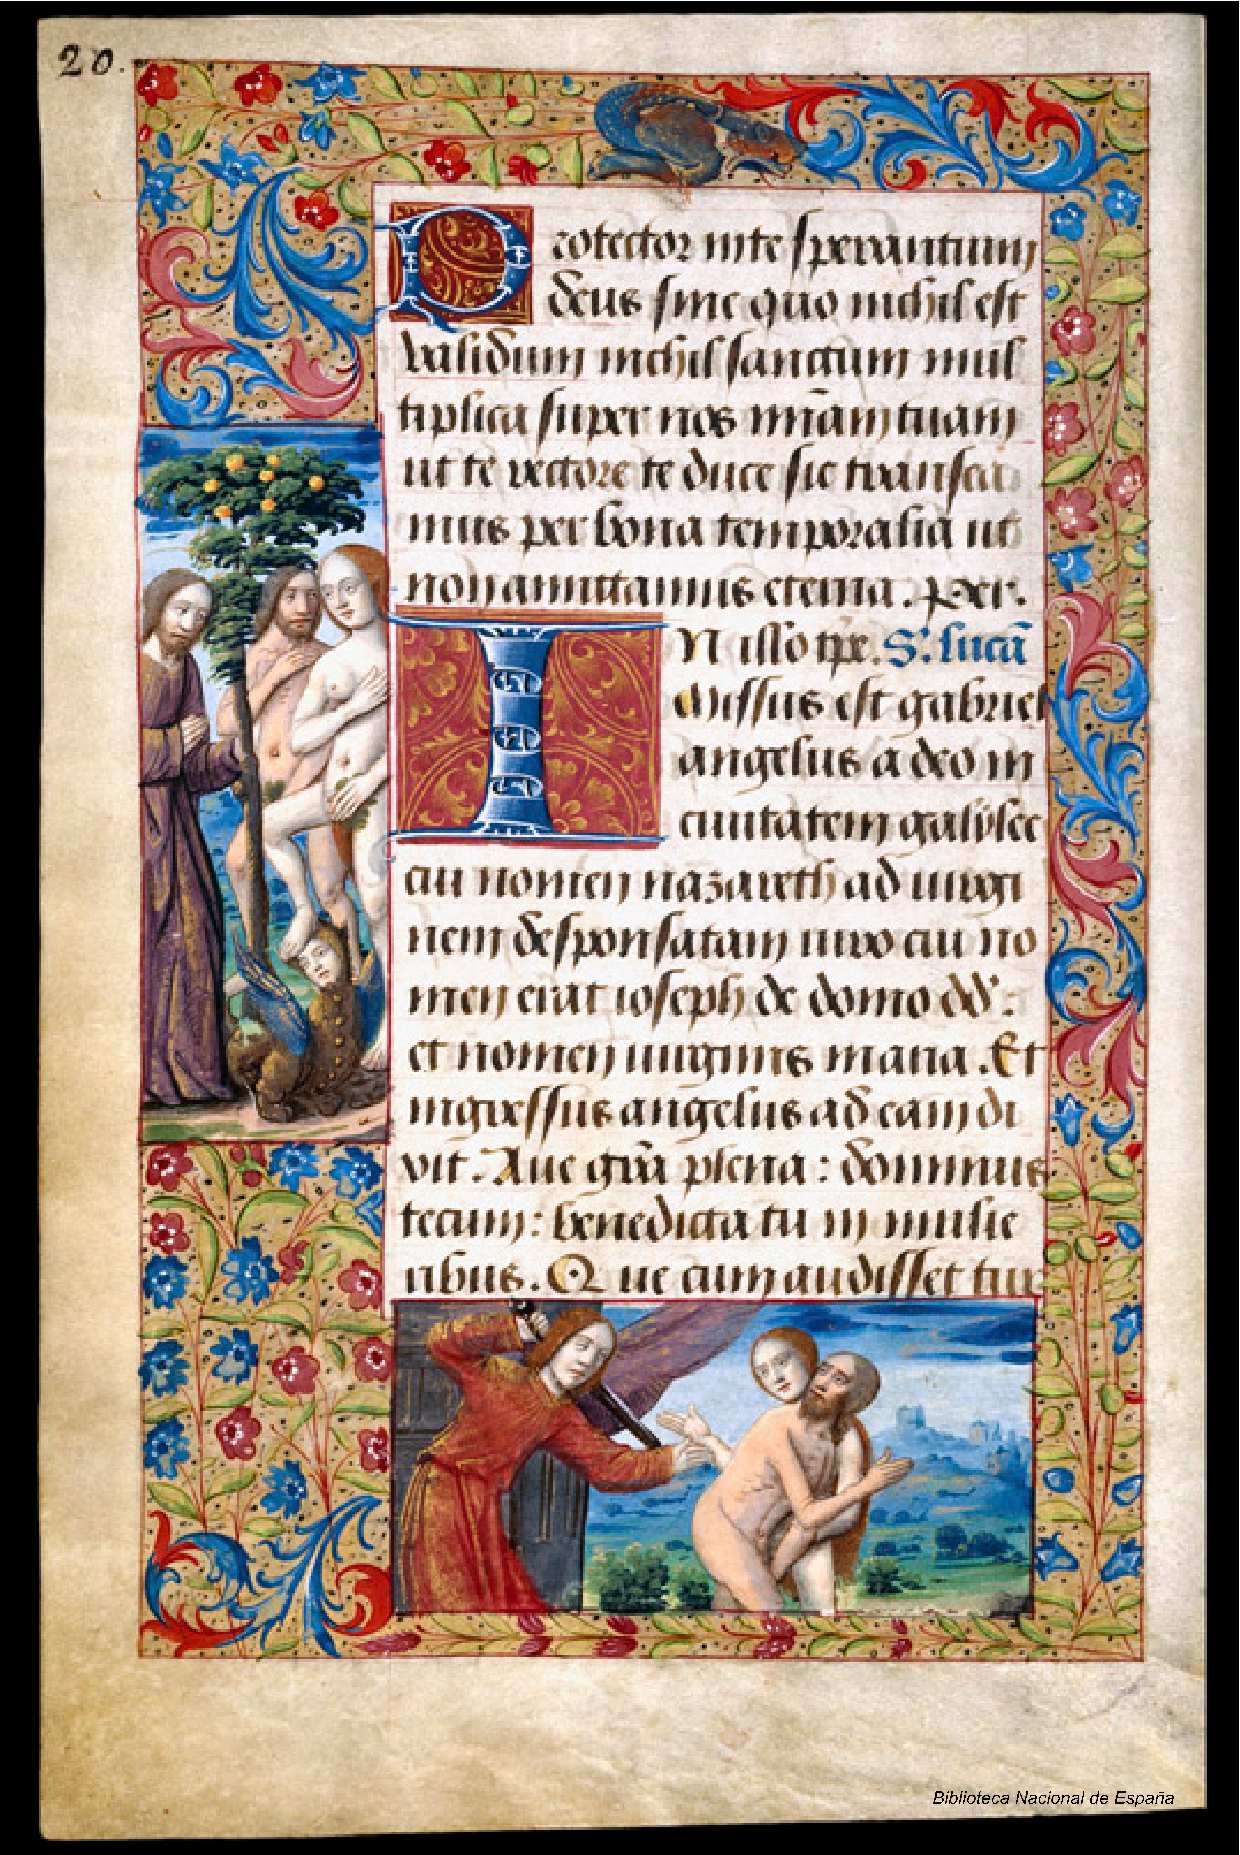 20.
Protector in te sperantium
deus sine quo nichil est
validum nichil sanctum mul
tiplica super nos mĩam tuam
ut te rectore te duce sic transea
mus per bona temporalia ut
non amittamus eterna. Per.
IN illo tp̃e. S. lucã
Missus est gabriel
angelus a deo in
civitatem galilee
cui nomen nazareth ad virgi
nem desponsatam viro cui no
men erat ioseph de domo dd:
et nomen virginis maria. Et
ingressus angelus ad eam di
xit. Ave grã plena: dominus
tecum: benedicta tu in mulie
ribus. Que cum audisset tur
Biblioteca Nacional de España